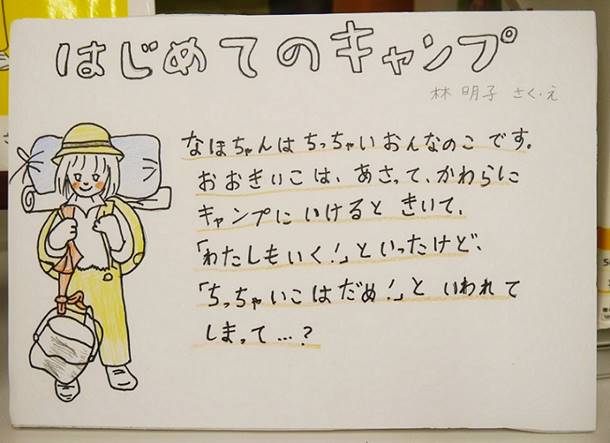 はじめてのキャンプ
林 明子 さく・え
なほちゃんは ちっちゃい おんなのこ です。
おおきいこは、あさって、かわらに
キャンプに いけると きいて、
「わたしもいく!」といったけど、
「ちっちゃいこはだめ!」と いわれて
しまって…?